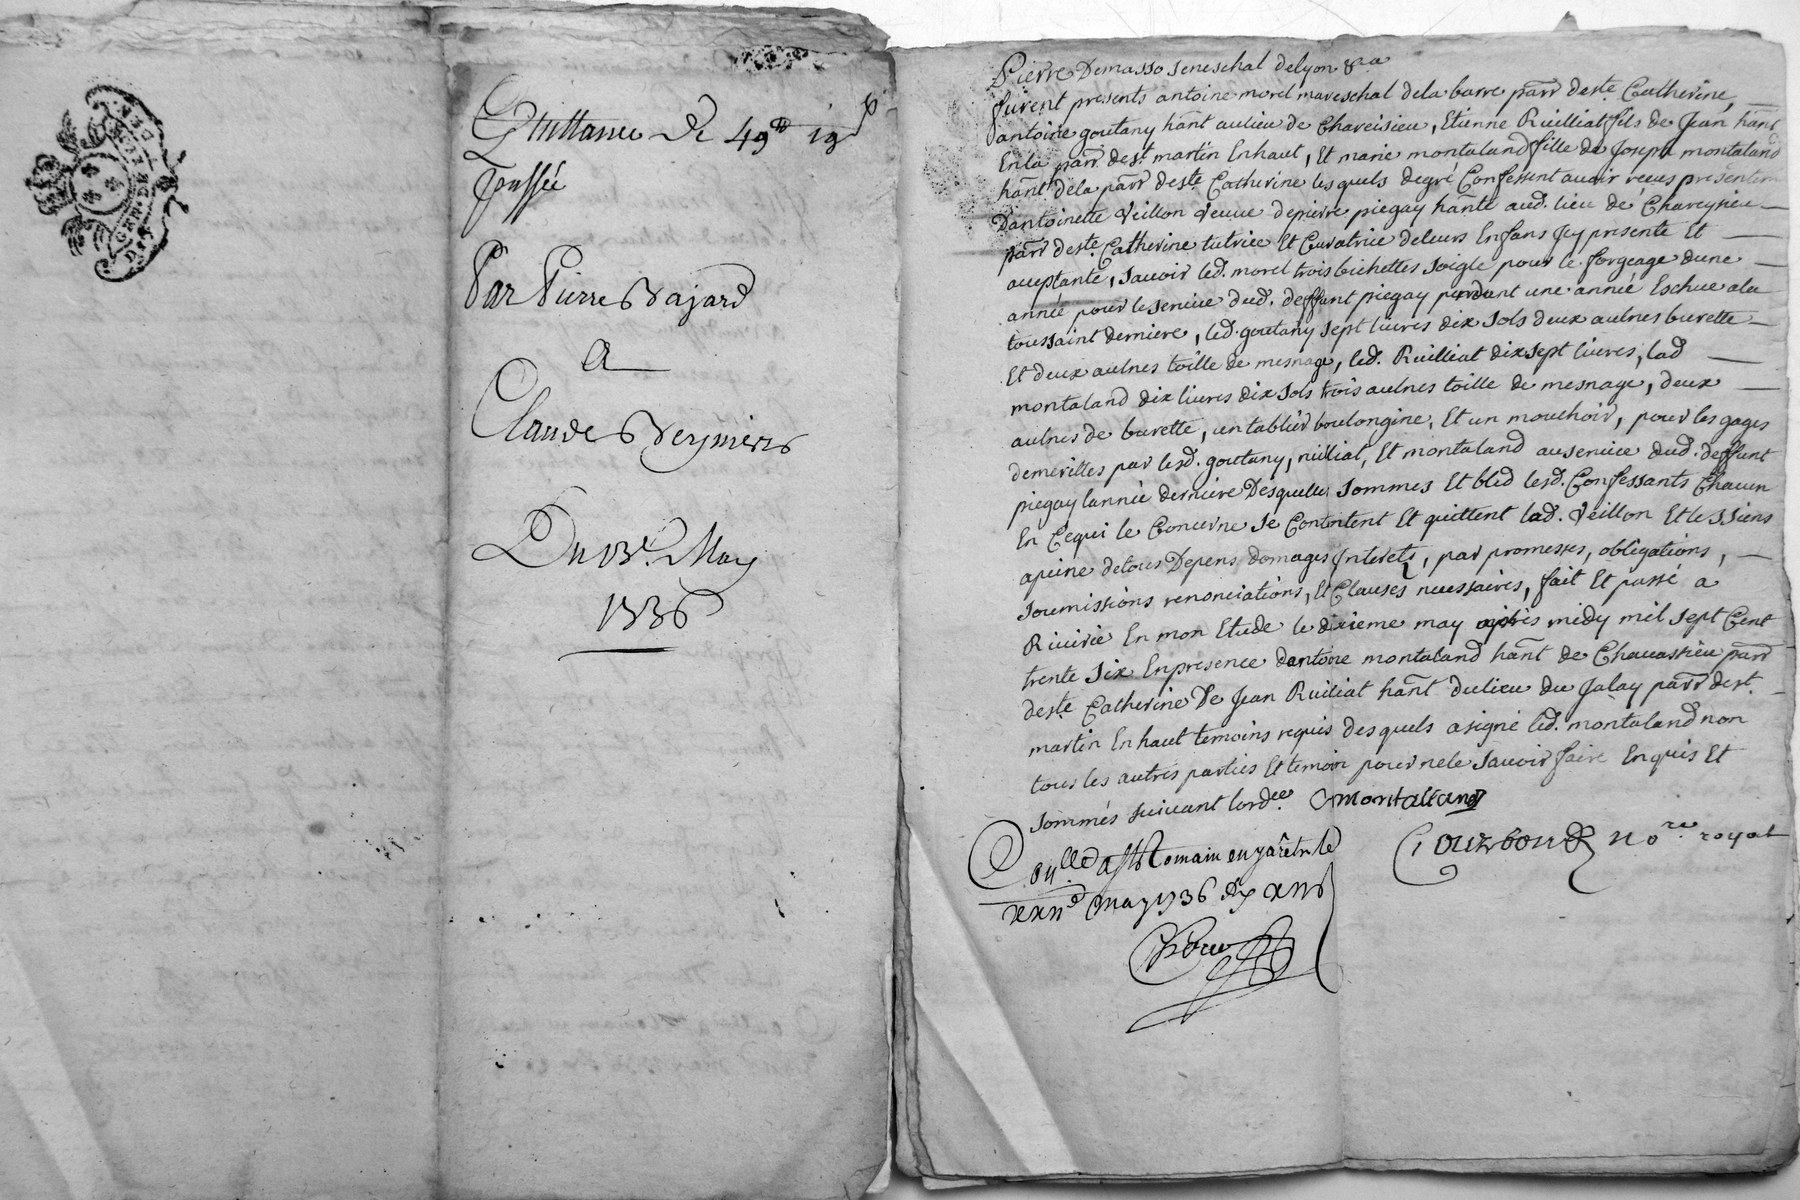 GEN. DE LYON
Quittance de 49ᵗᵗ 19ˢ
passée
Par Pierre Bajard
a
Claude Beynier
Du 13ᵉ. May
1736
Pierre Demasso seneschal delyon &ᵃ
furent presents antoine morel mareschal dela barre parr deste. Catherine,
antoine goutany hant aulieu de Chaveisieu, Etienne Ruilliat fils de Jean hant
Enla parr dest. martin Enhaut, Et marie montaland fille de Joseph montaland
hant dela parr deste. Catherine lesquels degré Confessent avoir reçus presentem
Dantoinette Veillon Veuve depierre piegay hante aud. lieu de Chaveysieu
parr deste. Catherine tutrice Et Curatrice deleurs Enfans Icy presente Et
acceptante, sauoir led. morel trois bichettes soigle pour le forgeage dune
année pour le seruice dud. deffunt piegay pendant une année Eschue ala
toussaint derniere, led. goutany sept liures dix sols deux aulnes burette
Et deux aulnes toille de mesnage, led. Ruilliat dixsept liures, lad
montaland dix liures dix sols trois aulnes toille de mesnage, deux
aulnes de burette, un tablier boulongine, Et un mouchoir, pour les gages
demerittes par lesd. goutany, rulliat, Et montaland auseruice dud. deffunt
piegay lannée derniere Desquelles sommes Et bled lesd. Confessants Chacun
En Cequi le Concerne se Contentent Et quittent lad. Veillon Et les siens
apeine detous Depens domages Interets, par promesses, obligations,
soumissions renonciations, Et Clauses necessaires, fait Et passé a
Riuirie En mon Etude le dixieme may après midy mil sept Cent
trente six Enpresence dantoine montaland hant de Chauassieu parr
deste. Catherine De Jean Ruiliat hant dulieu du Jalay parr dest.
martin Enhaut temoins requis desquels a signé led. montaland non
tous les autres parties Et temoin pour nele sauoir faire Enquis Et
sommés suiuant lordce. Montaland
Courbon noʳᵉ royal
Conllé a St Romain en Jarêt le
xxiiᵈ may 1736